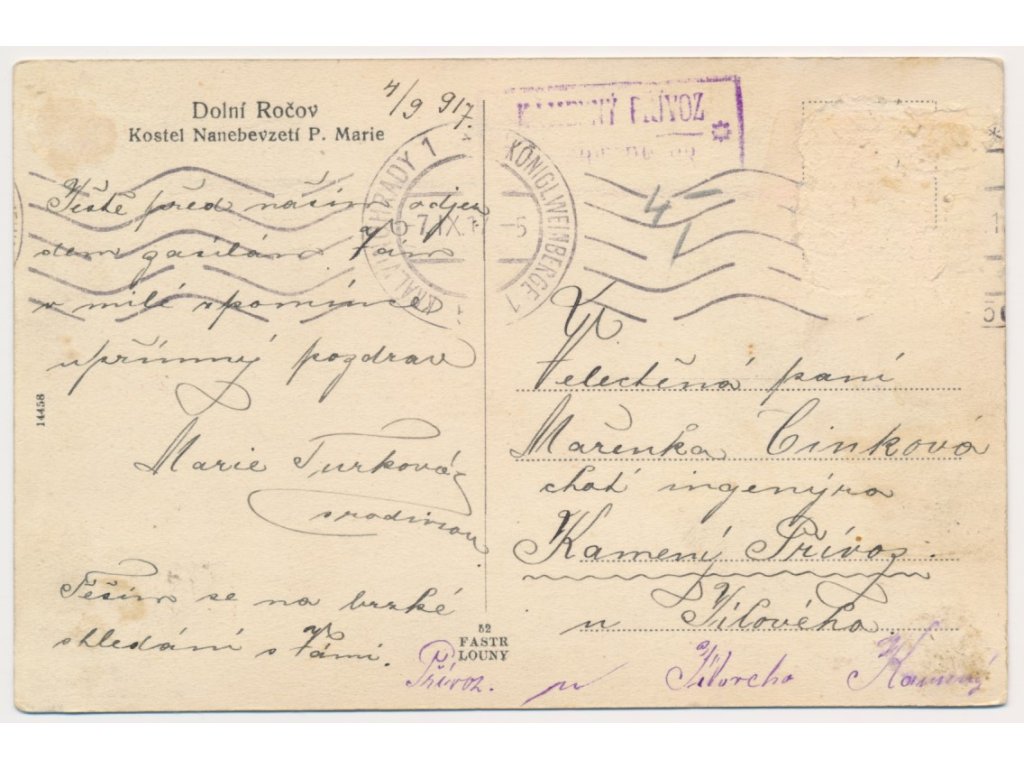 Dolní Ročov
Kostel Nanebevzetí P. Marie
4/9 917.
KAMENNÝ PŘÍVOZ
KRÁL. VINOHRADY 1
KÖNIGL. WEINBERGE 1
7.IX.1
5
Ještě před naším odjez
dem zasílám Vám
v milé vzpomínce
upřímný pozdrav
Marie Turková
s rodinou
Těším se na brzké
shledání s Vámi.
14458
52
FASTR
LOUNY
4-
Velectěná paní
Mařenka Cinková
choť ingenýra
Kamený Přívoz.
u Jílového.
Přívoz. u Jílového Kamený